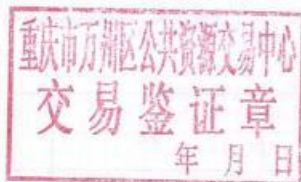 重庆市万州区公共资源交易中心
交易鉴证章
年 月 日